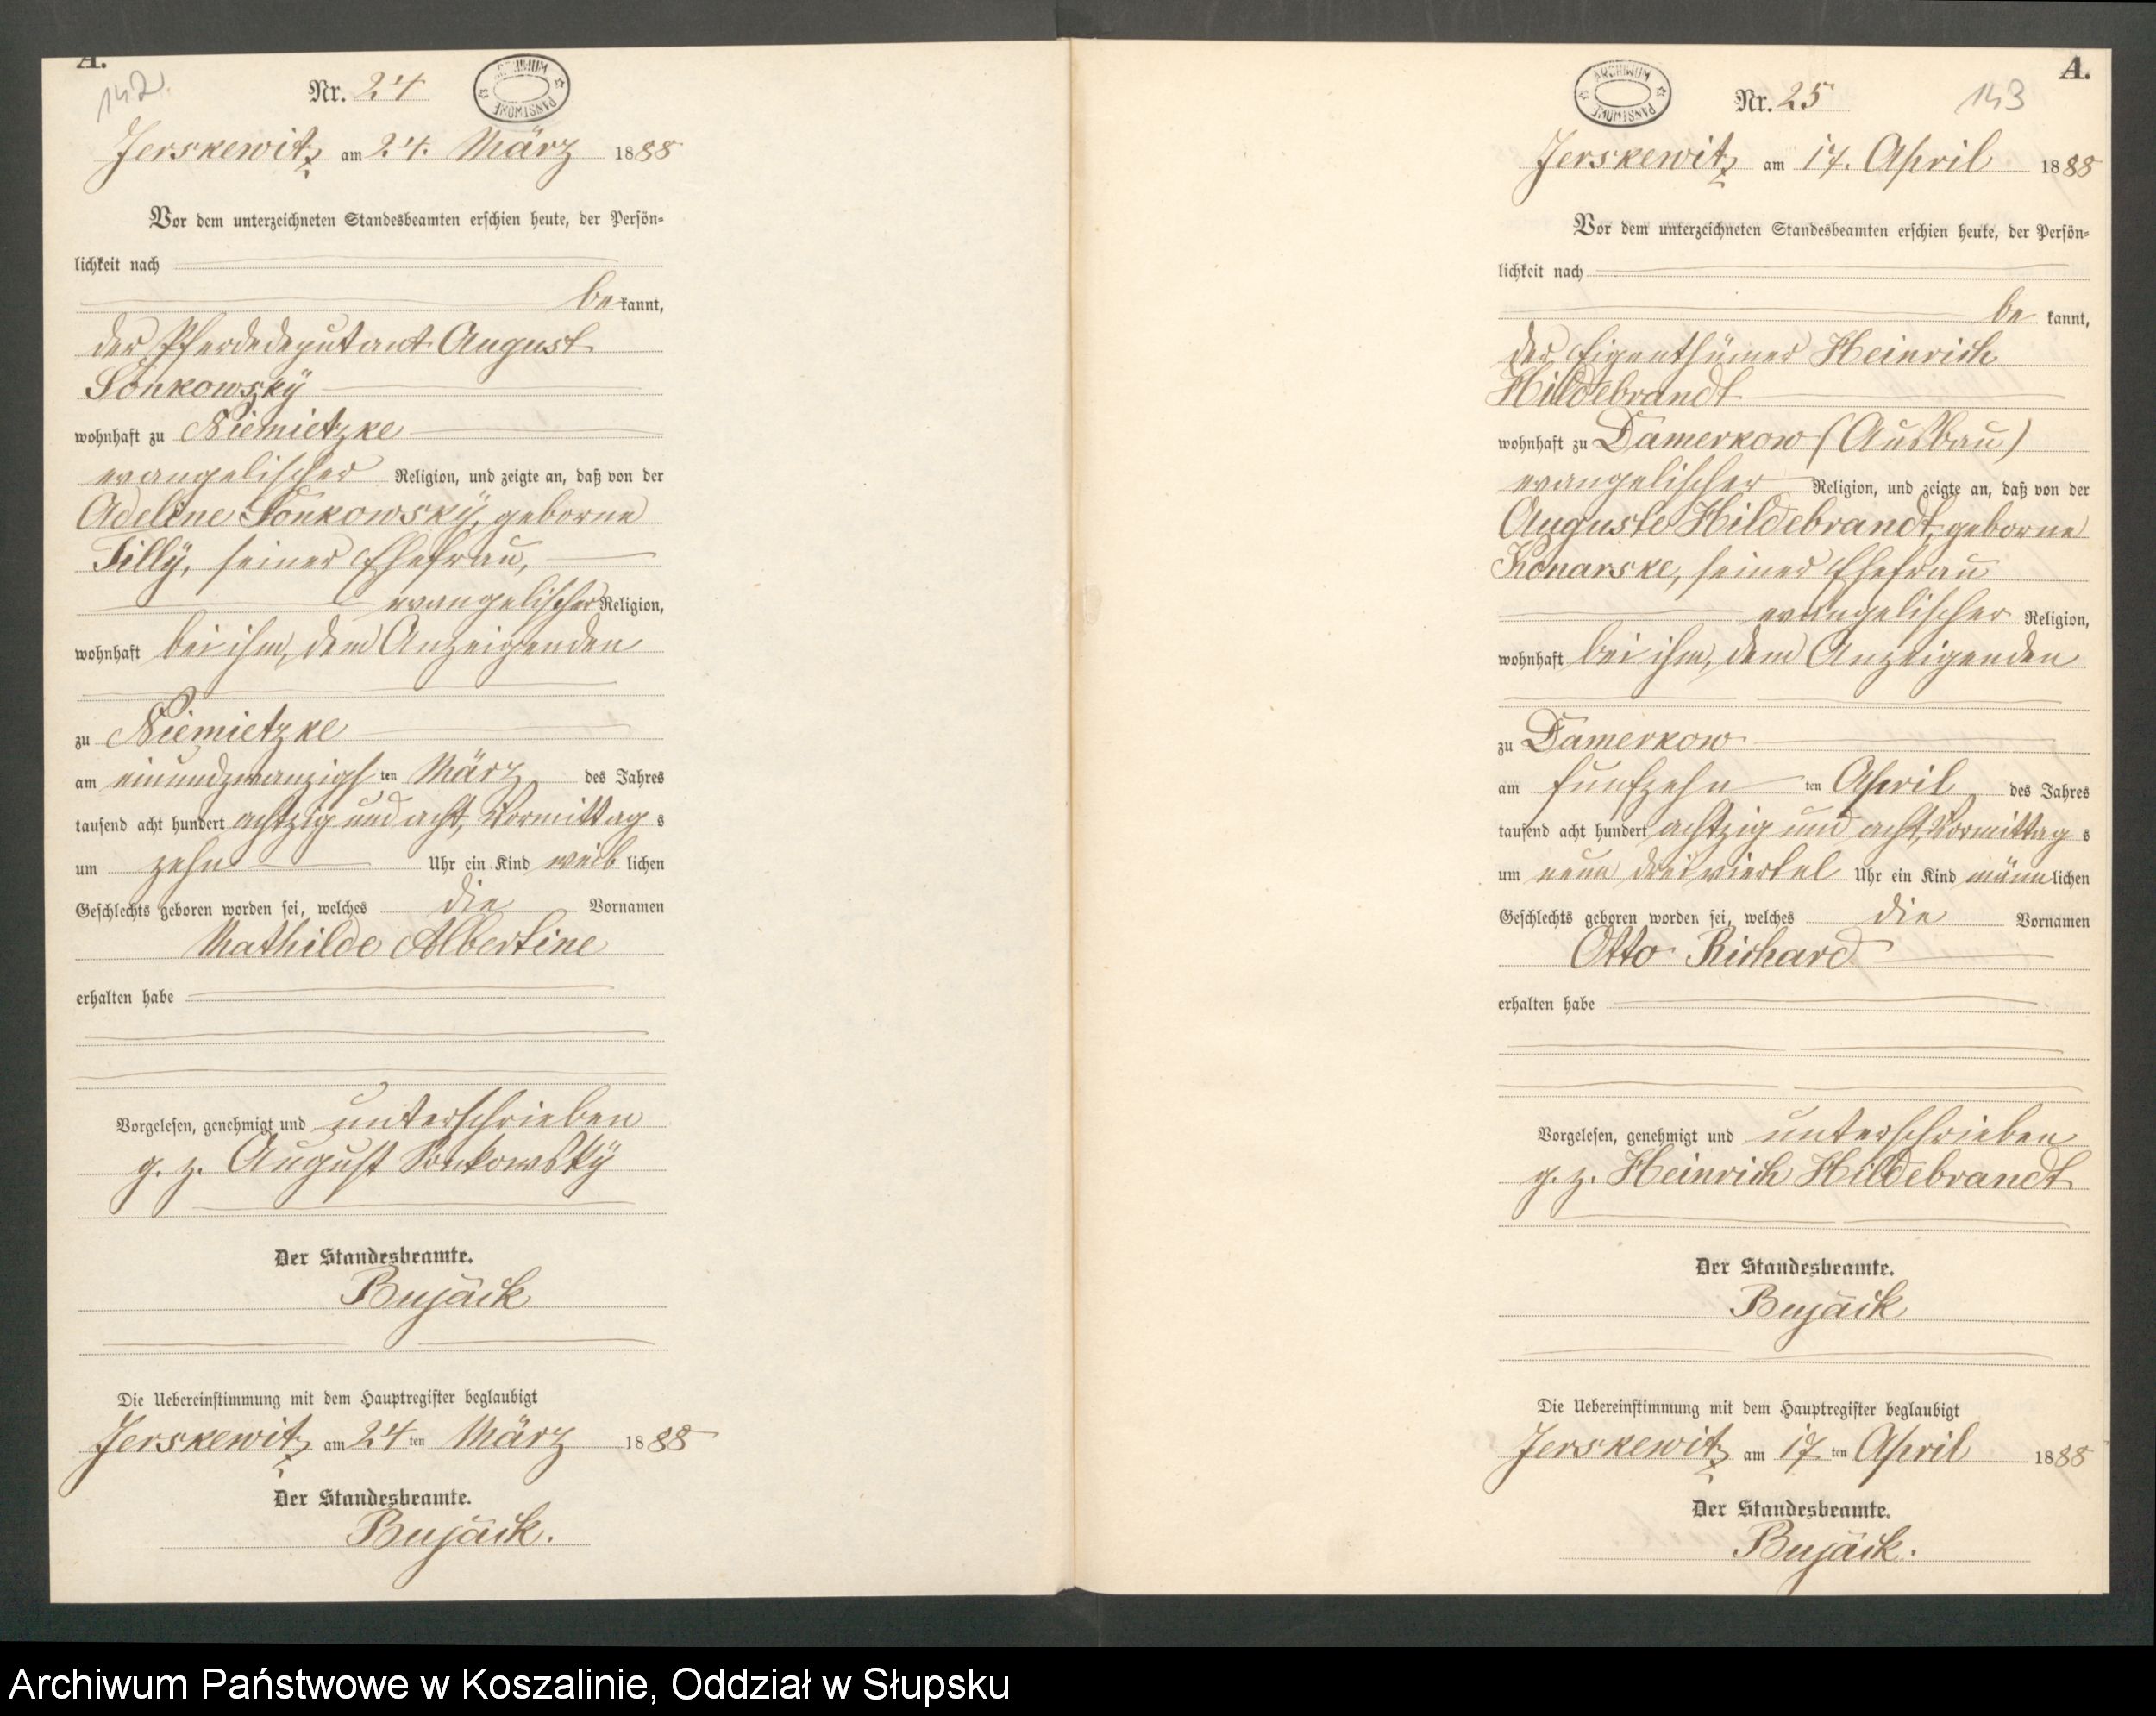 A.
142.
Nr. 24
ARCHIWUM PAŃSTWOWE
Jerskewitz am 24. März 1888
Vor dem unterzeichneten Standesbeamten erschien heute, der Persön-
lichkeit nach
bekannt,
der Pferdedeputant August
Sonkowszky
wohnhaft zu Niemietzke
evangelischer Religion, und zeigte an, daß von der
Adeline Sonkowsky, geborne
Tilly, seiner Ehefrau,
evangelischer Religion,
wohnhaft bei ihm, dem Anzeigenden
zu Niemietzke
am einundzwanzigsten März des Jahres
tausend acht hundert achtzig und acht, Vormittags
um zehn Uhr ein Kind weiblichen
Geschlechts geboren worden sei, welches die Vornamen
Mathilde Albertine
erhalten habe
Vorgelesen, genehmigt und unterschrieben
g. z. August Sonkowsky
Der Standesbeamte.
Bujäck
Die Uebereinstimmung mit dem Hauptregister beglaubigt
Jerskewitz am 24ten März 1888
Der Standesbeamte.
Bujäck.
A.
143
Nr. 25
ARCHIWUM PAŃSTWOWE
Jerskewitz am 17. April 1888
Vor dem unterzeichneten Standesbeamten erschien heute, der Persön-
lichkeit nach
bekannt,
der Eigenthümer Heinrich
Hildebrandt
wohnhaft zu Damerkow (Ausbau)
evangelischer Religion, und zeigte an, daß von der
Auguste Hildebrandt, geborne
Konarske, seiner Ehefrau
evangelischer Religion,
wohnhaft bei ihm, dem Anzeigenden
zu Damerkow
am funfzehnten April des Jahres
tausend acht hundert achtzig und acht, Vormittags
um neun dreiviertel Uhr ein Kind männlichen
Geschlechts geboren worden sei, welches die Vornamen
Otto Richard
erhalten habe
Vorgelesen, genehmigt und unterschrieben
g. z. Heinrich Hildebrandt
Der Standesbeamte.
Bujäck
Die Uebereinstimmung mit dem Hauptregister beglaubigt
Jerskewitz am 17ten April 1888
Der Standesbeamte.
Bujäck.
Archiwum Państwowe w Koszalinie, Oddział w Słupsku